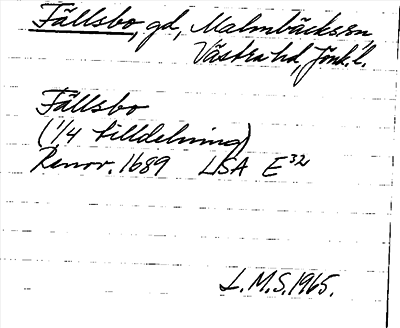 Fällsbo, gd, Malmbäcks sn,
Västra hd, Jönk. l.
Fällsbo
(1/4 tilldelning)
Renov. 1689 LSA E 32
L.M.S. 1965.